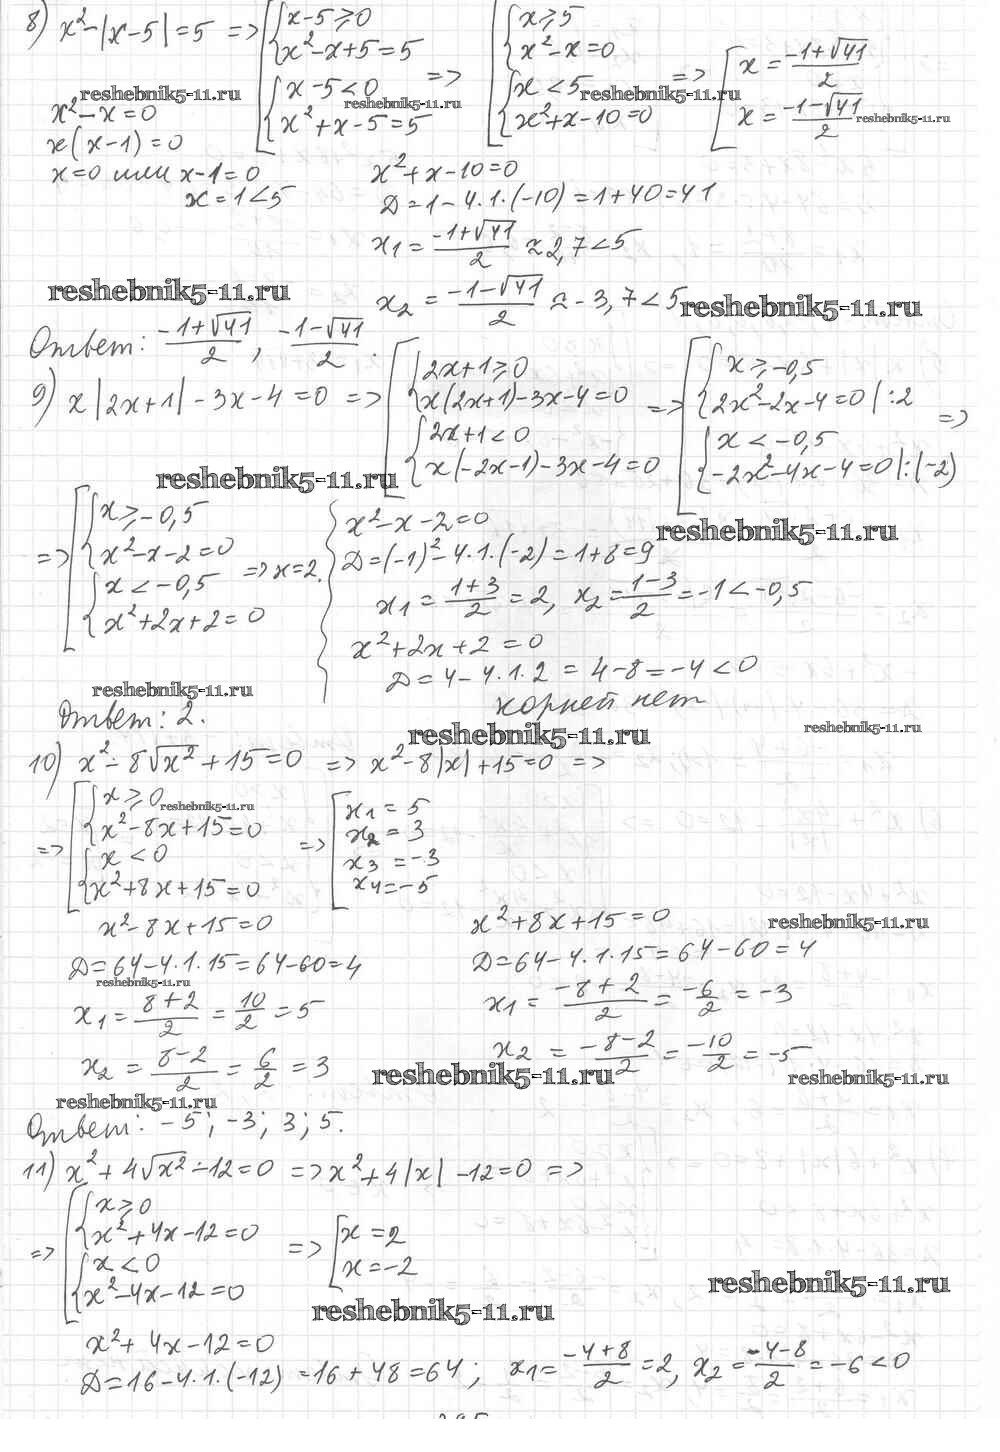 8) x²-|x-5|=5 => [{x-5≥0 {x²-x+5=5 {x-5<0 {x²+x-5=5 => [{x≥5 {x²-x=0 {x<5 {x²+x-10=0 => [x=(-1+√41)/2 x=(-1-√41)/2
reshebnik5-11.ru reshebnik5-11.ru reshebnik5-11.ru reshebnik5-11.ru
x²-x=0
x(x-1)=0
x=0 или x-1=0
x=1<5
x²+x-10=0
Д=1-4·1·(-10)=1+40=41
x₁=(-1+√41)/2≈2,7<5
x₂=(-1-√41)/2≈-3,7<5
reshebnik5-11.ru reshebnik5-11.ru
Ответ: (-1+√41)/2, (-1-√41)/2.
9) x|2x+1|-3x-4=0 => [{2x+1≥0 {x(2x+1)-3x-4=0 {2x+1<0 {x(-2x-1)-3x-4=0 => [{x≥-0,5 {2x²-2x-4=0|:2 {x<-0,5 {-2x²-4x-4=0|:(-2) =>
reshebnik5-11.ru
reshebnik5-11.ru
=> [{x≥-0,5 {x²-x-2=0 {x<-0,5 {x²+2x+2=0 => x=2.
x²-x-2=0
Д=(-1)²-4·1·(-2)=1+8=9
x₁=(1+3)/2=2, x₂=(1-3)/2=-1<-0,5
x²+2x+2=0
Д=4-4·1·2=4-8=-4<0
корней нет
reshebnik5-11.ru
Ответ: 2.
reshebnik5-11.ru reshebnik5-11.ru
10) x²-8√x²+15=0 => x²-8|x|+15=0 =>
=> [{x≥0 {x²-8x+15=0 {x<0 {x²+8x+15=0 => [x₁=5 x₂=3 x₃=-3 x₄=-5
reshebnik5-11.ru
x²-8x+15=0
Д=64-4·1·15=64-60=4
reshebnik5-11.ru
x₁=(8+2)/2=10/2=5
x₂=(8-2)/2=6/2=3
x²+8x+15=0
reshebnik5-11.ru
Д=64-4·1·15=64-60=4
x₁=(-8+2)/2=-6/2=-3
x₂=(-8-2)/2=-10/2=-5
reshebnik5-11.ru reshebnik5-11.ru
reshebnik5-11.ru
Ответ: -5; -3; 3; 5.
11) x²+4√x²-12=0 => x²+4|x|-12=0 =>
=> [{x≥0 {x²+4x-12=0 {x<0 {x²-4x-12=0 => [x=2 x=-2
reshebnik5-11.ru
reshebnik5-11.ru
x²+4x-12=0
Д=16-4·1·(-12)=16+48=64; x₁=(-4+8)/2=2, x₂=(-4-8)/2=-6<0